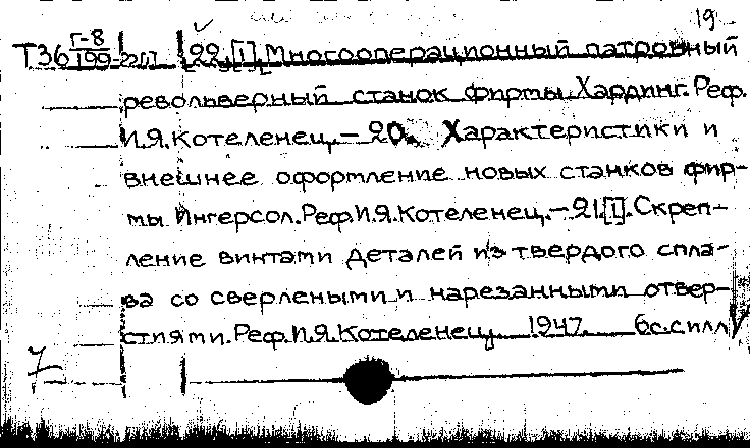 19
Т36 Г-8/199-2207 22,[I]. Многооперационный патронный
револьверный станок фирмы Хардинг. Реф.
И.Я.Котеленец. – 20. Характеристики и
внешнее оформление новых станков фир-
мы Ингерсол. Реф. И.Я.Котеленец. – 21.[I]. Скреп-
ление винтами деталей из твердого спла-
ва со сверлеными и нарезанными отвер-
стиями. Реф. И.Я.Котеленец. 1947. 6с.силл
7